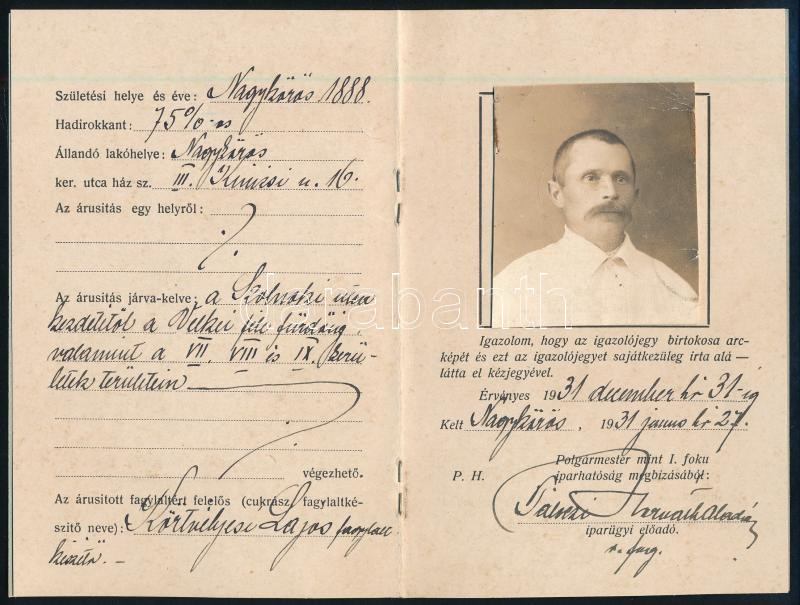 Születési helye és éve: Nagykőrös 1888.
Hadirokkant: 75%-os
Állandó lakóhelye: Nagykőrös
ker. utca ház sz. III. Kinizsi u. 16.
Az árusitás egy helyről:
Az árusitás járva-kelve: a Szolnoki utca
kezdetétől a Velkei féle fürdőig,
valamint a VII, VIII és IX. kerü-
letek területein
végezhető.
Az árusitott fagylaltért felelős (cukrász, fagylaltké-
szitő neve): Körtvélyesi Lajos fagylalt
készitő. -
Igazolom, hogy az igazolójegy birtokosa arc-
képét és ezt az igazolójegyet sajátkezüleg irta alá —
látta el kézjegyével.
Érvényes 1931 december hó 31-ig
Kelt Nagykőrös, 1931 junius hó 27.
Polgármester mint I. foku
P. H. iparhatóság megbizásából:
Horváth Aladár
iparügyi előadó.
darabanth